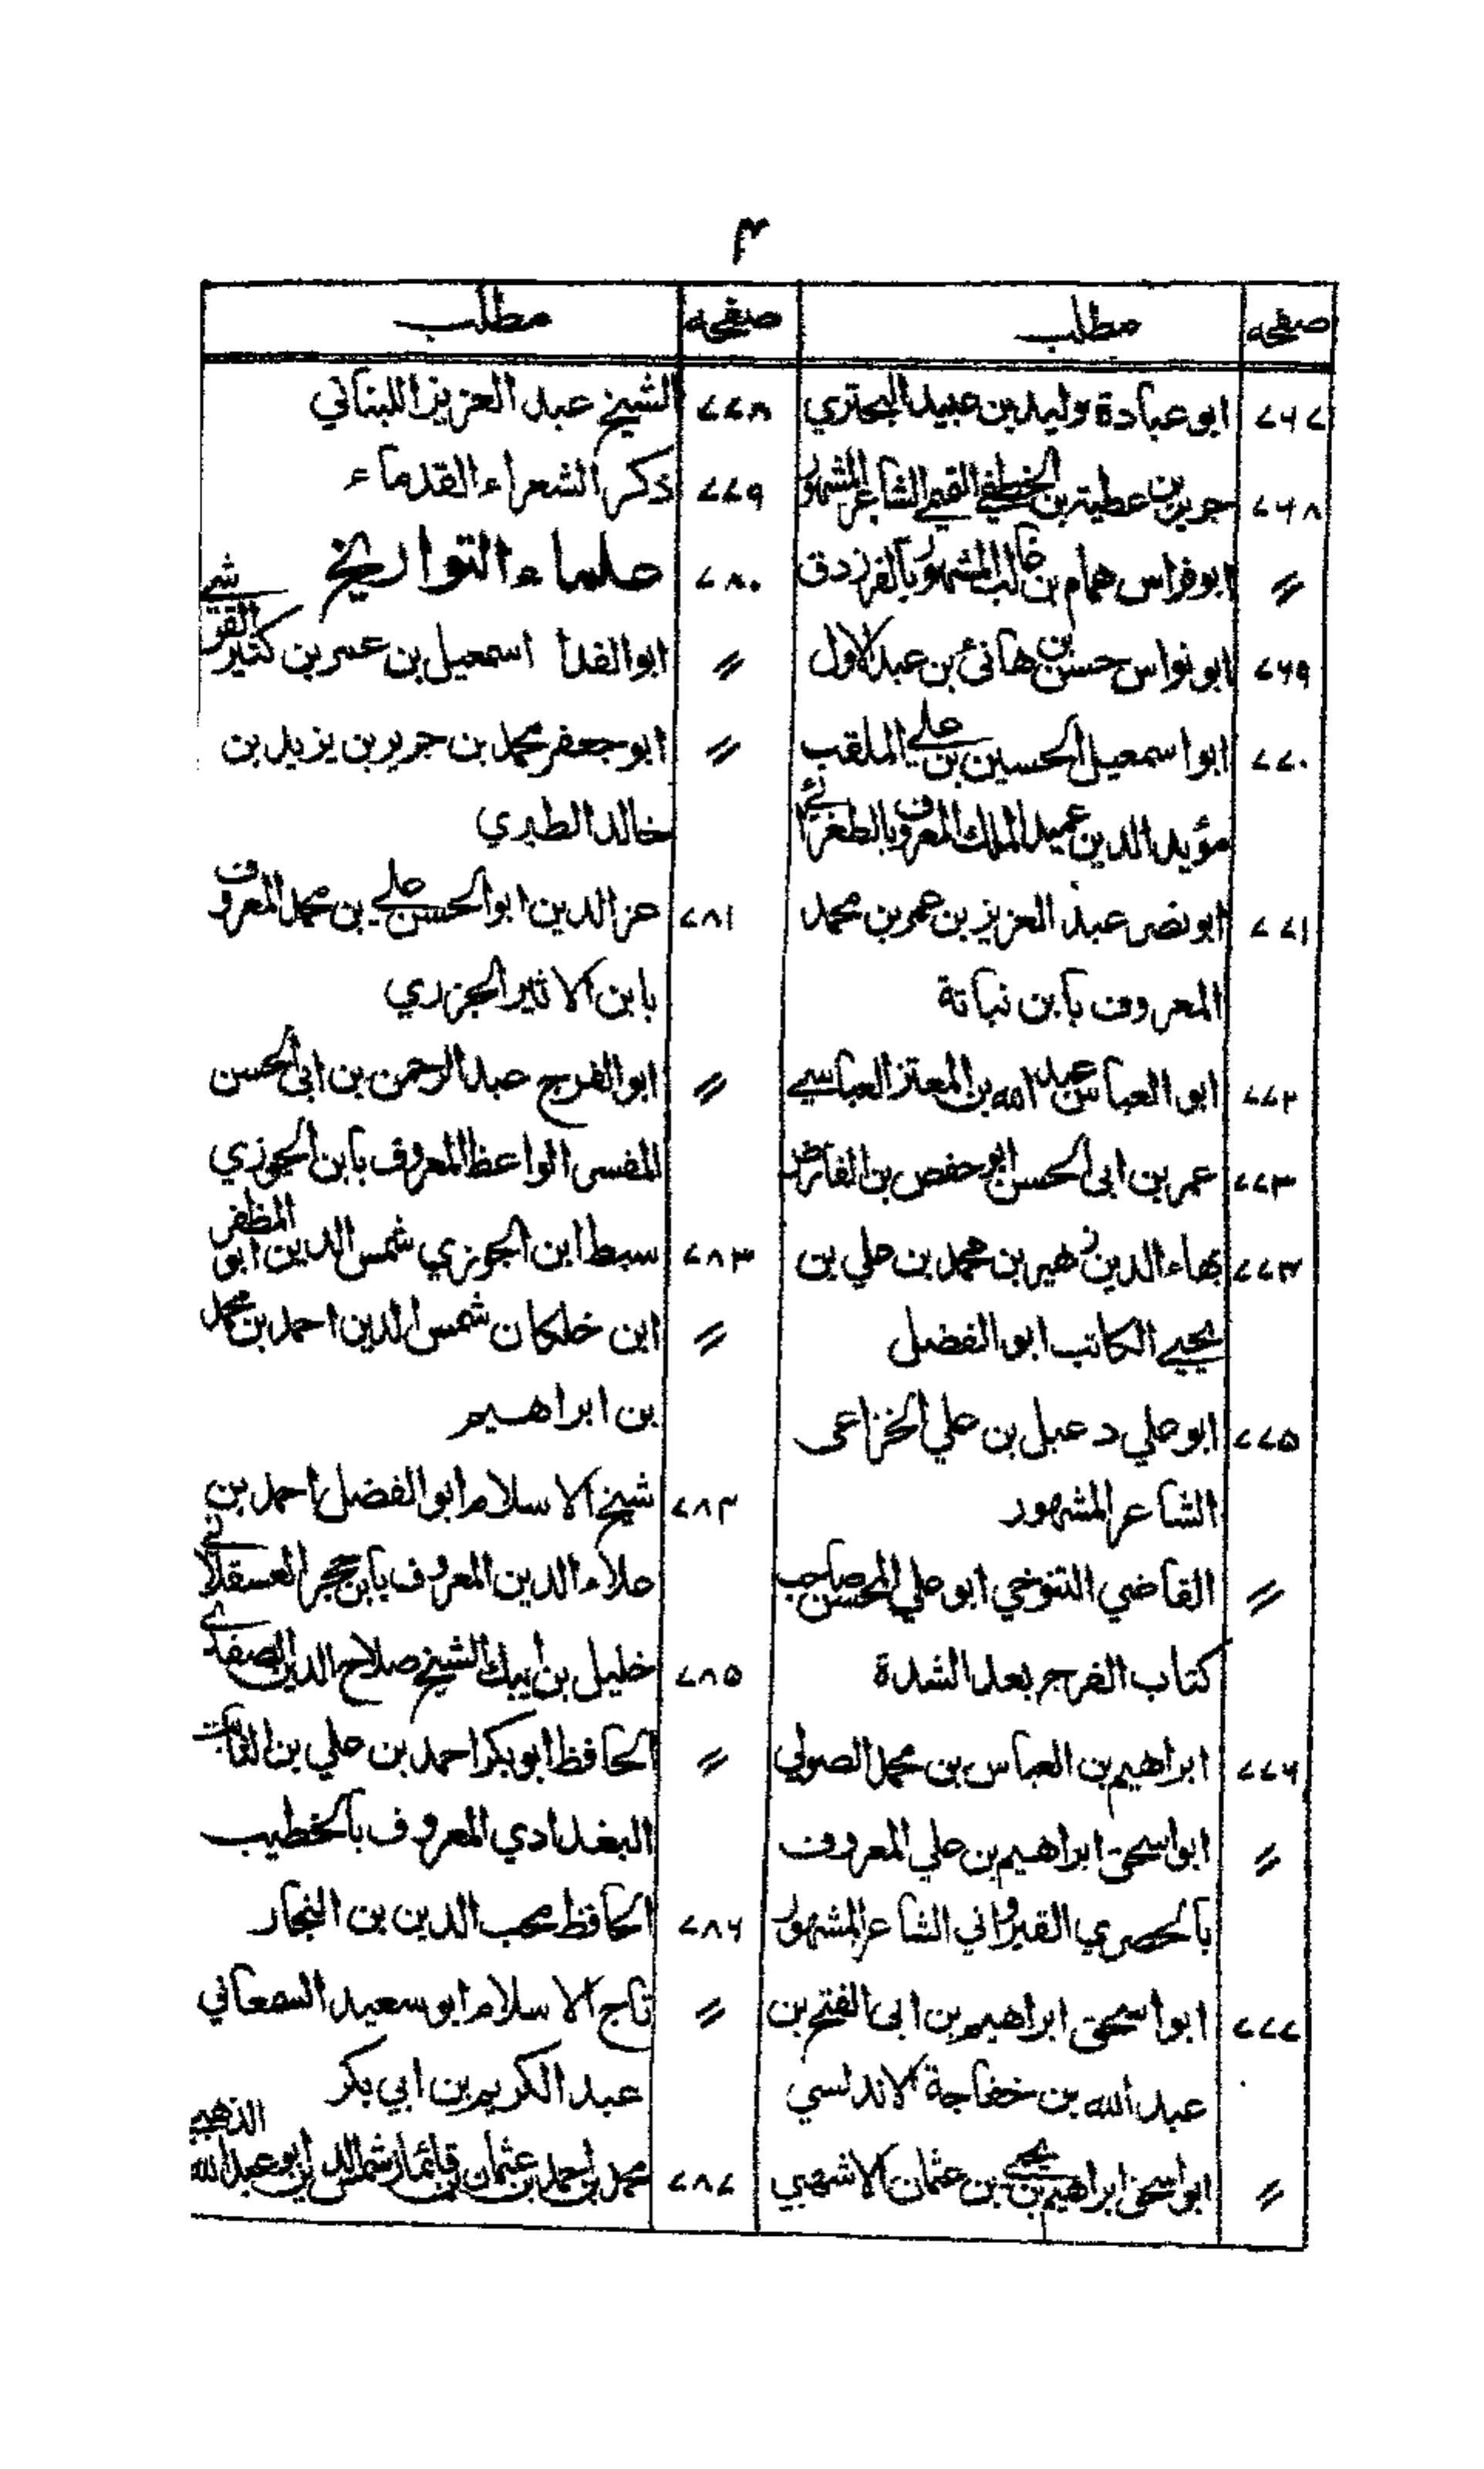 ۴
صفحه مطلب
۷۶۷ ابو عبادة وليد بن عبيد البحتري
۷۶۸ جرير بن عطية بن الخطفي التميمي الشاعر المشهور
〃 ابو فراس همام بن غالب المشهور بالفرزدق
۷۶۹ ابو نواس حسن بن هانئ بن عبد الاول
۷۷۰ ابو اسمعيل الحسين بن علي الملقب
مؤيد الدين عميد الملك المعروف بالطغرائي
۷۷۱ ابو نصر عبد العزيز بن عمر بن محمد
المعروف بابن نباتة
۷۷۲ ابو العباس عبد الله بن المعتز العباسي
۷۷۳ عمر بن ابى الحسن ابو حفص بن الفارض
۷۷۴ بهاء الدين زهير بن محمد بن علي بن
يحيي الكاتب ابو الفضل
۷۷۵ ابو علي دعبل بن علي الخزاعى
الشاعر المشهور
〃 القاضي التنوخي ابو علي المحسن صاحب
كتاب الفرج بعد الشدة
۷۷۶ ابراهيم بن العباس بن محمد الصولي
〃 ابو اسحق ابراهيم بن علي المعروف
بالحصري القيرواني الشاعر المشهور
۷۷۷ ابو اسحق ابراهيم بن ابى الفتح بن
عبد الله بن خفاجة الاندلسي
〃 ابو اسحق ابراهيم بن يحيي بن عثمان الاشهبي
صفحه مطلب
۷۷۸ الشيخ عبد العزيز اللبناني
۷۷۹ ذكر الشعراء القدماء
۷۸۰ علماء التواريخ
〃 ابو الفدا اسمعيل بن عمر بن كثير القرشي
〃 ابو جعفر محمد بن جرير بن يزيد بن
خالد الطبري
۷۸۱ عز الدين ابو الحسن علي بن محمد المعروف
بابن الاثير الجزري
〃 ابو الفرج عبد الرحمن بن ابى الحسن
المفسر الواعظ المعروف بابن الجوزي
۷۸۳ سبط ابن الجوزي شمس الدين ابو المظفر
〃 ابن خلكان شمس الدين احمد بن محمد
بن ابراهيم
۷۸۴ شيخ الاسلام ابو الفضل احمد بن
علاء الدين المعروف بابن حجر العسقلاني
۷۸۵ خليل بن ايبك الشيخ صلاح الدين الصفدي
〃 الحافظ ابو بكر احمد بن علي بن ثابت
البغدادي المعروف بالخطيب
۷۸۶ الحافظ محب الدين بن النجار
〃 تاج الاسلام ابو سعيد السمعاني
عبد الكريم بن ابي بكر
۷۸۷ محمد بن احمد بن عثمان بن قائماز شمس الدين ابو عبد الله الذهبي